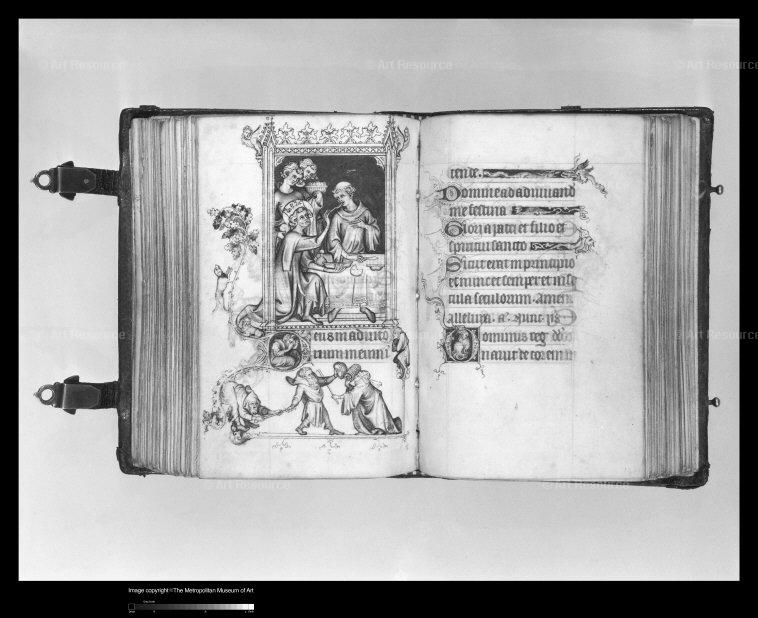 © Art Resource
© Art Resource
© Art Resource
eus in adiuto
rium meum i
tende.
Domine ad adiuuand
me festina
Gloria patri et filio et
spiritui sancto
Sicut erat in principio
et nunc et semper et in se
cula seculorum. amen
alleluya. a. ps
Dominus reg
nauit decorem in
© Art Resource
© Art Resource
© Art Resource
© Art Resource
Image copyright © The Metropolitan Museum of Art